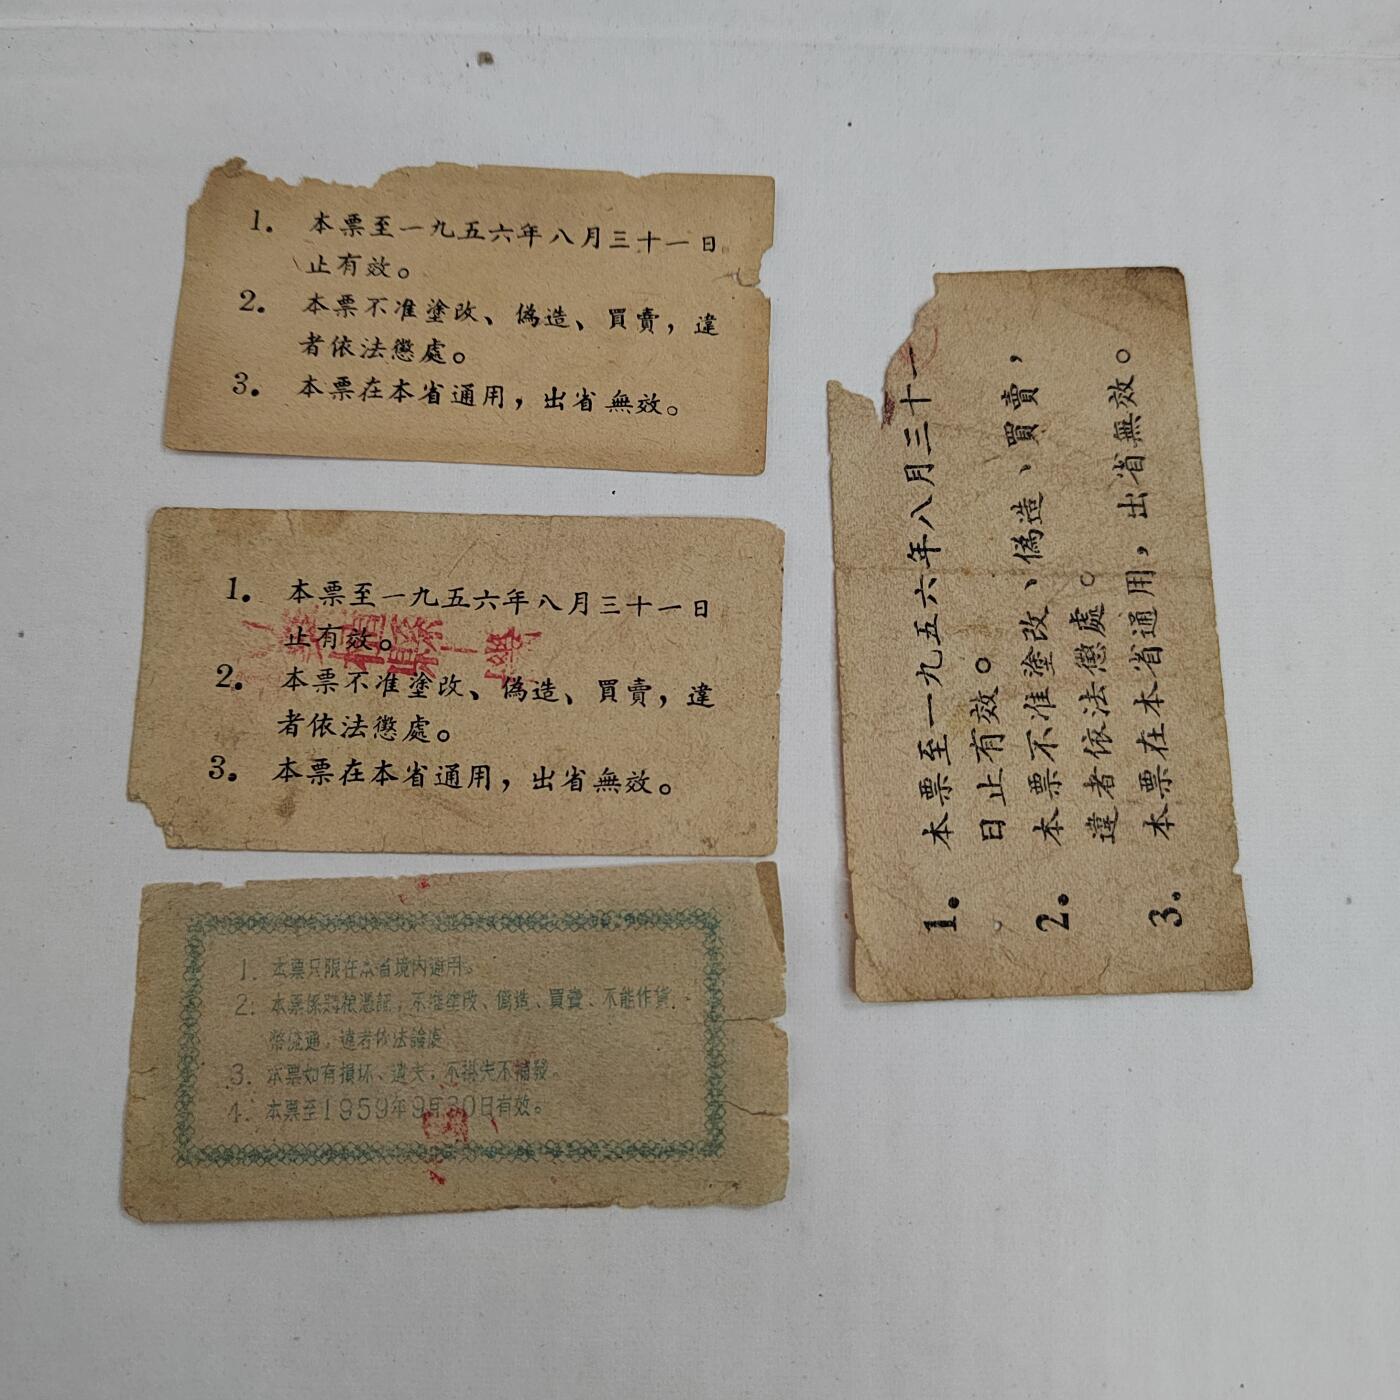 1. 本票至一九五六年八月三十一日
止有效。
2. 本票不准塗改、偽造、買賣，違
者依法懲處。
3. 本票在本省通用，出省無效。
1. 本票至一九五六年八月三十一日
止有效。
2. 本票不准塗改、偽造、買賣，違
者依法懲處。
3. 本票在本省通用，出省無效。
1. 本票只限在本省境内通用。
2. 本票係購粮憑証，不准塗改、偽造、買賣、不能作貨
幣流通，違者依法論處
3. 本票如有損坏、遺失，不掛失不補發。
4. 本票至1959年9月30日有效。
1. 本票至一九五六年八月三十一
日止有效。
2. 本票不准塗改、偽造、買賣，
違者依法懲處。
3. 本票在本省通用，出省無效。